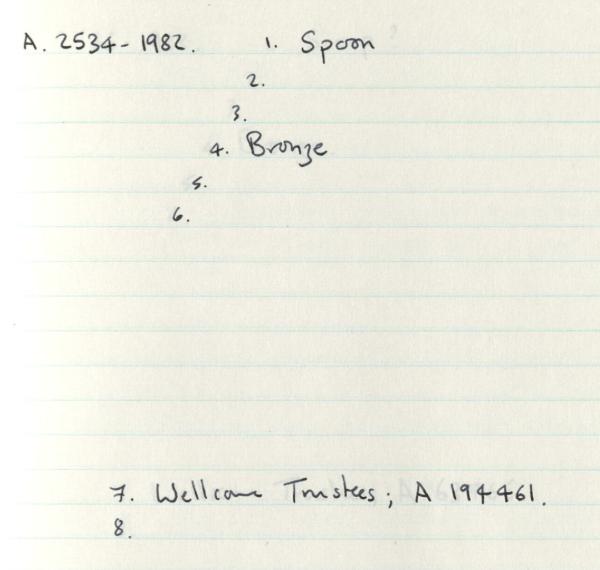 A. 2534-1982. 1. Spoon
2.
3.
4. Bronze
5.
6.
7. Wellcome Trustees; A 194461.
8.